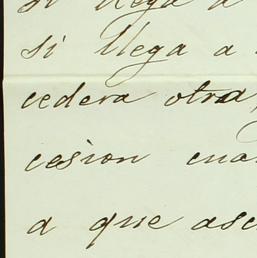 si llega a
si llega a
cedera otra,
cesion cua
a que asc